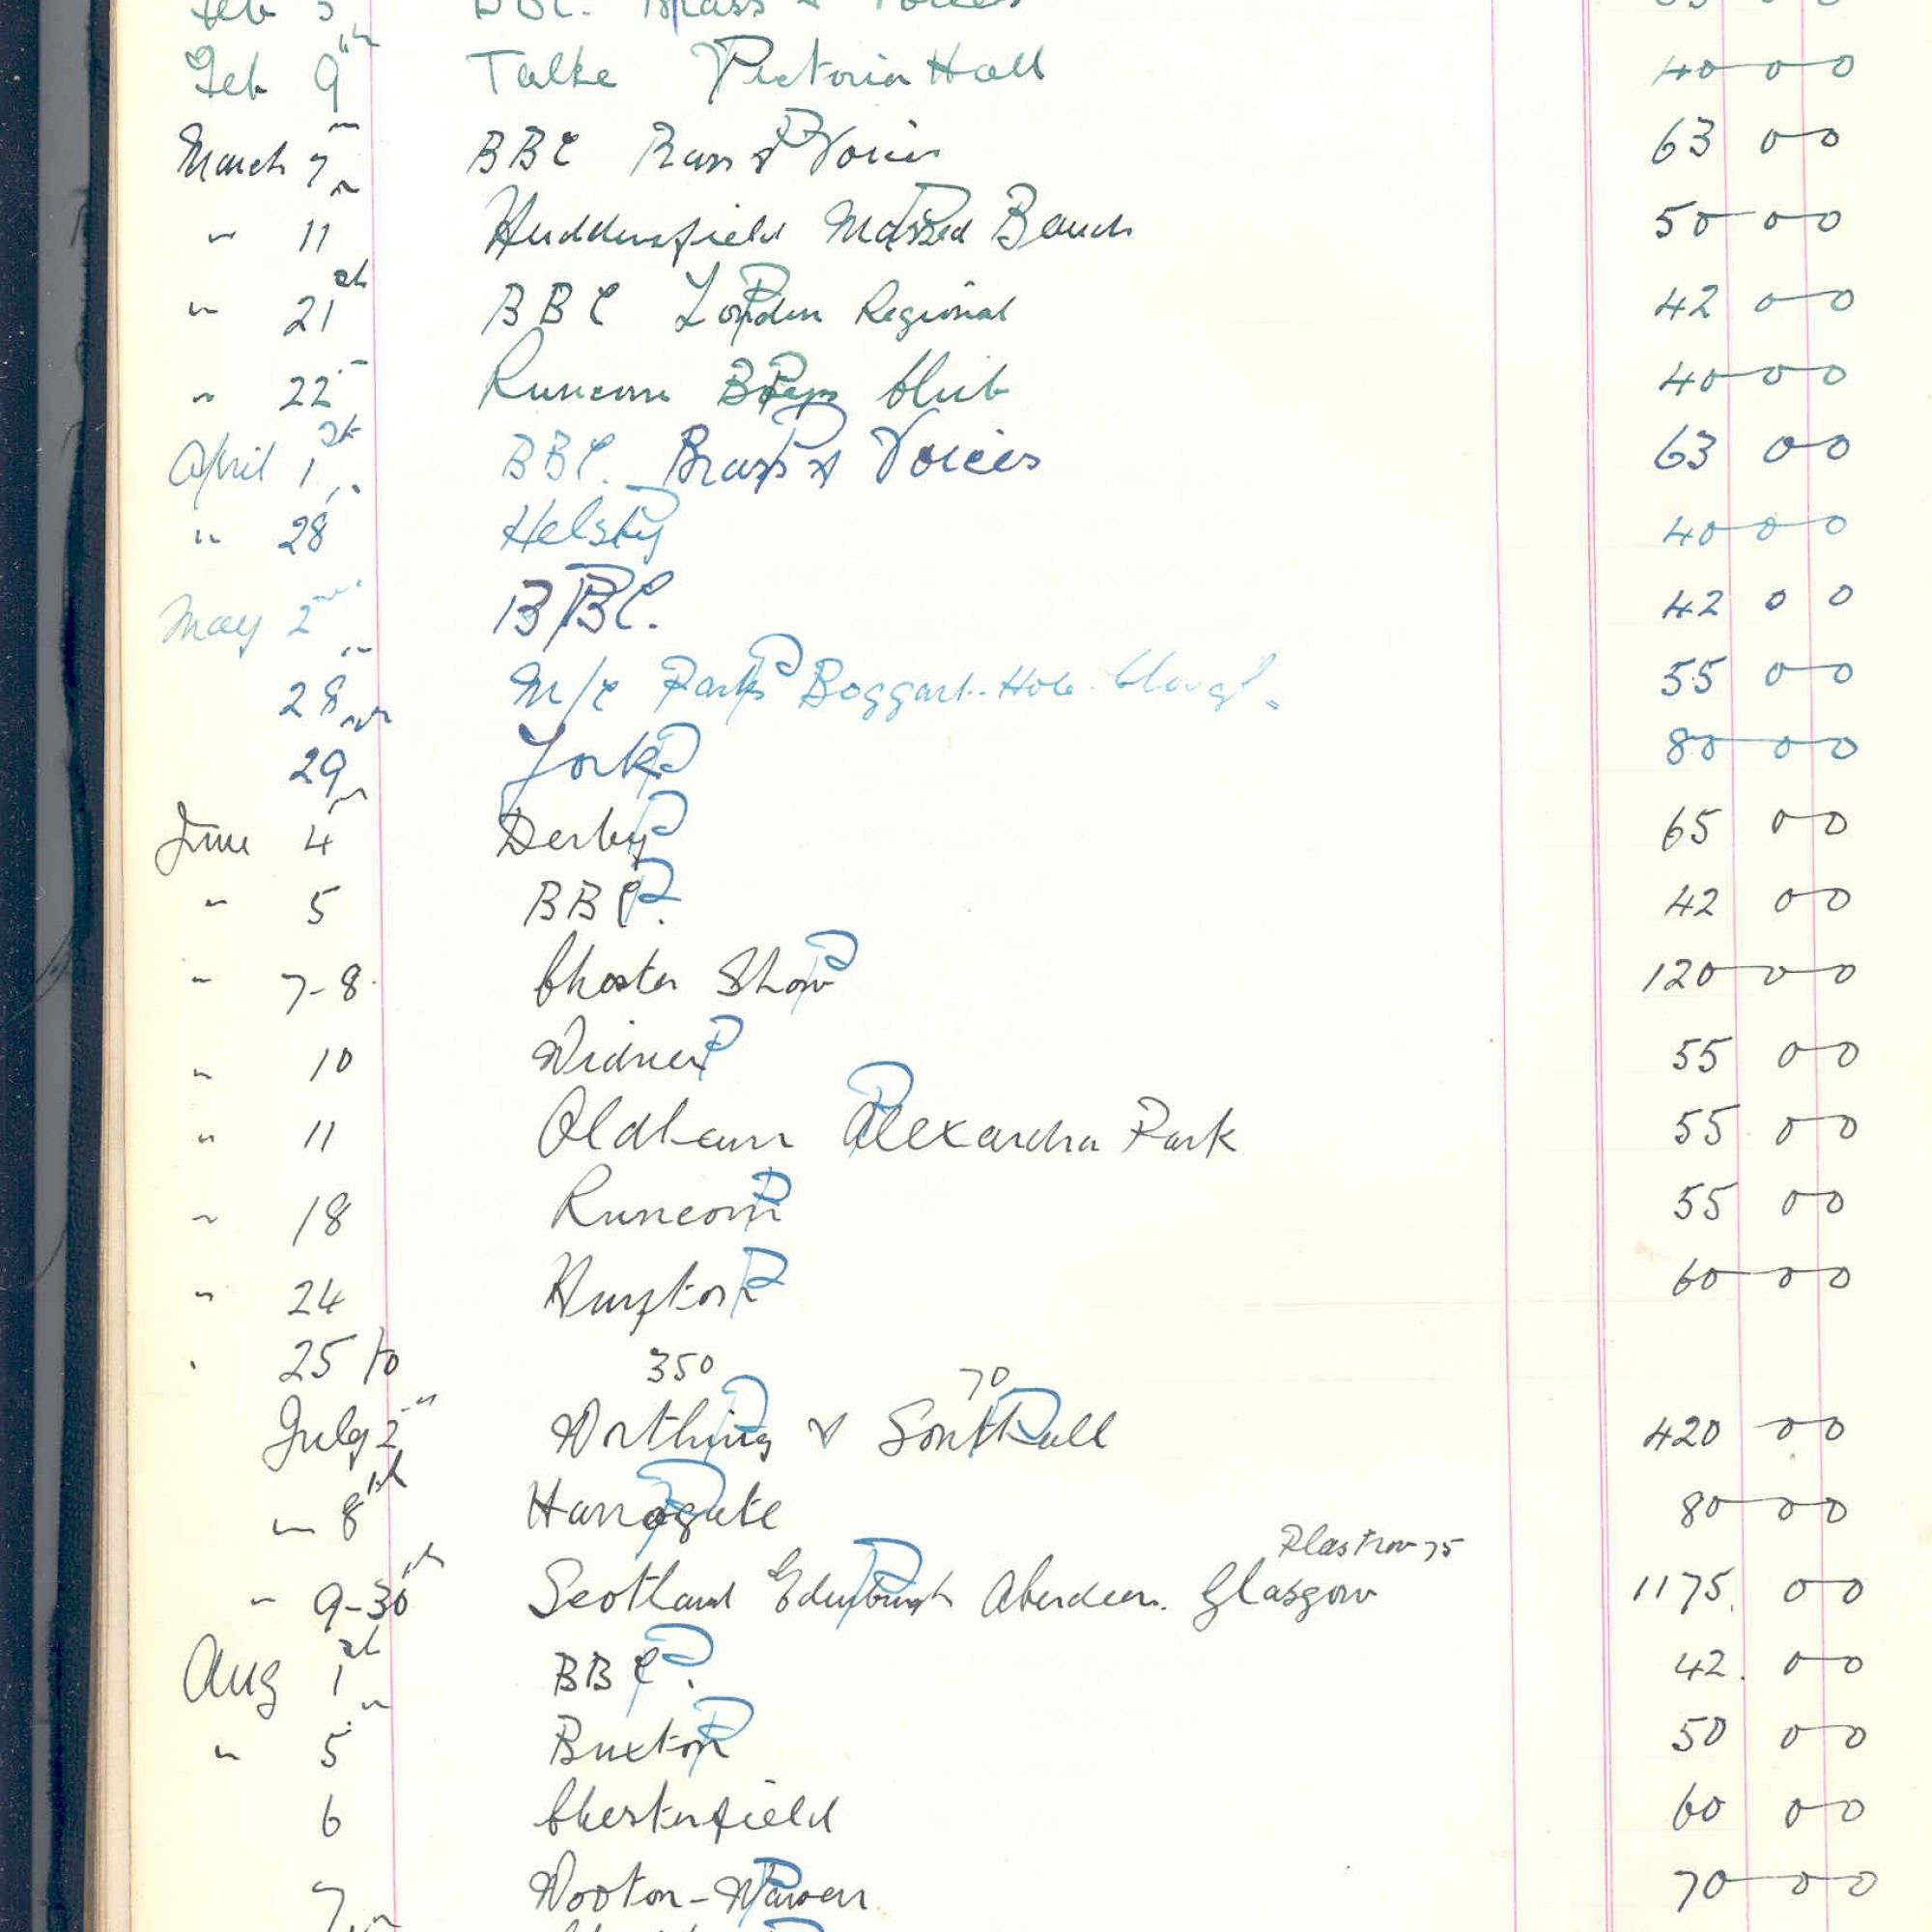 Feb 5 BBC. Brass & Voices 63 0 0
Feb 9th Talke Victoria Hall 40 0 0
March 7th BBC Brass & Voices 63 0 0
" 11th Huddersfield Massed Bands 50 0 0
" 21st BBC London Regional 42 0 0
" 22 Runcorn Boys Club 40 0 0
April 1st BBC. Brass & Voices 63 0 0
" 28th Helsby 40 0 0
May 2nd BBC. 42 0 0
28th M/c Parks Boggart-Hole-Clough. 55 0 0
29th York 80 0 0
June 4th Derby 65 0 0
" 5 BBC. 42 0 0
" 7-8. Chester Show 120 0 0
" 10 Widnes 55 0 0
" 11 Oldham Alexandra Park 55 0 0
" 18 Runcorn 55 0 0
" 24 Huyton 60 0 0
" 25 to 350 70
July 2nd Worthing & Southall 420 0 0
" 8th Harrogate 80 0 0
Plastrov 75
" 9-30th Scotland Edinburgh Aberdeen. Glasgow 1175. 0 0
Aug 1st BBC. 42. 0 0
" 5th Buxton 50 0 0
6 Chesterfield 60 0 0
7 Wooton-Wawen 70 0 0